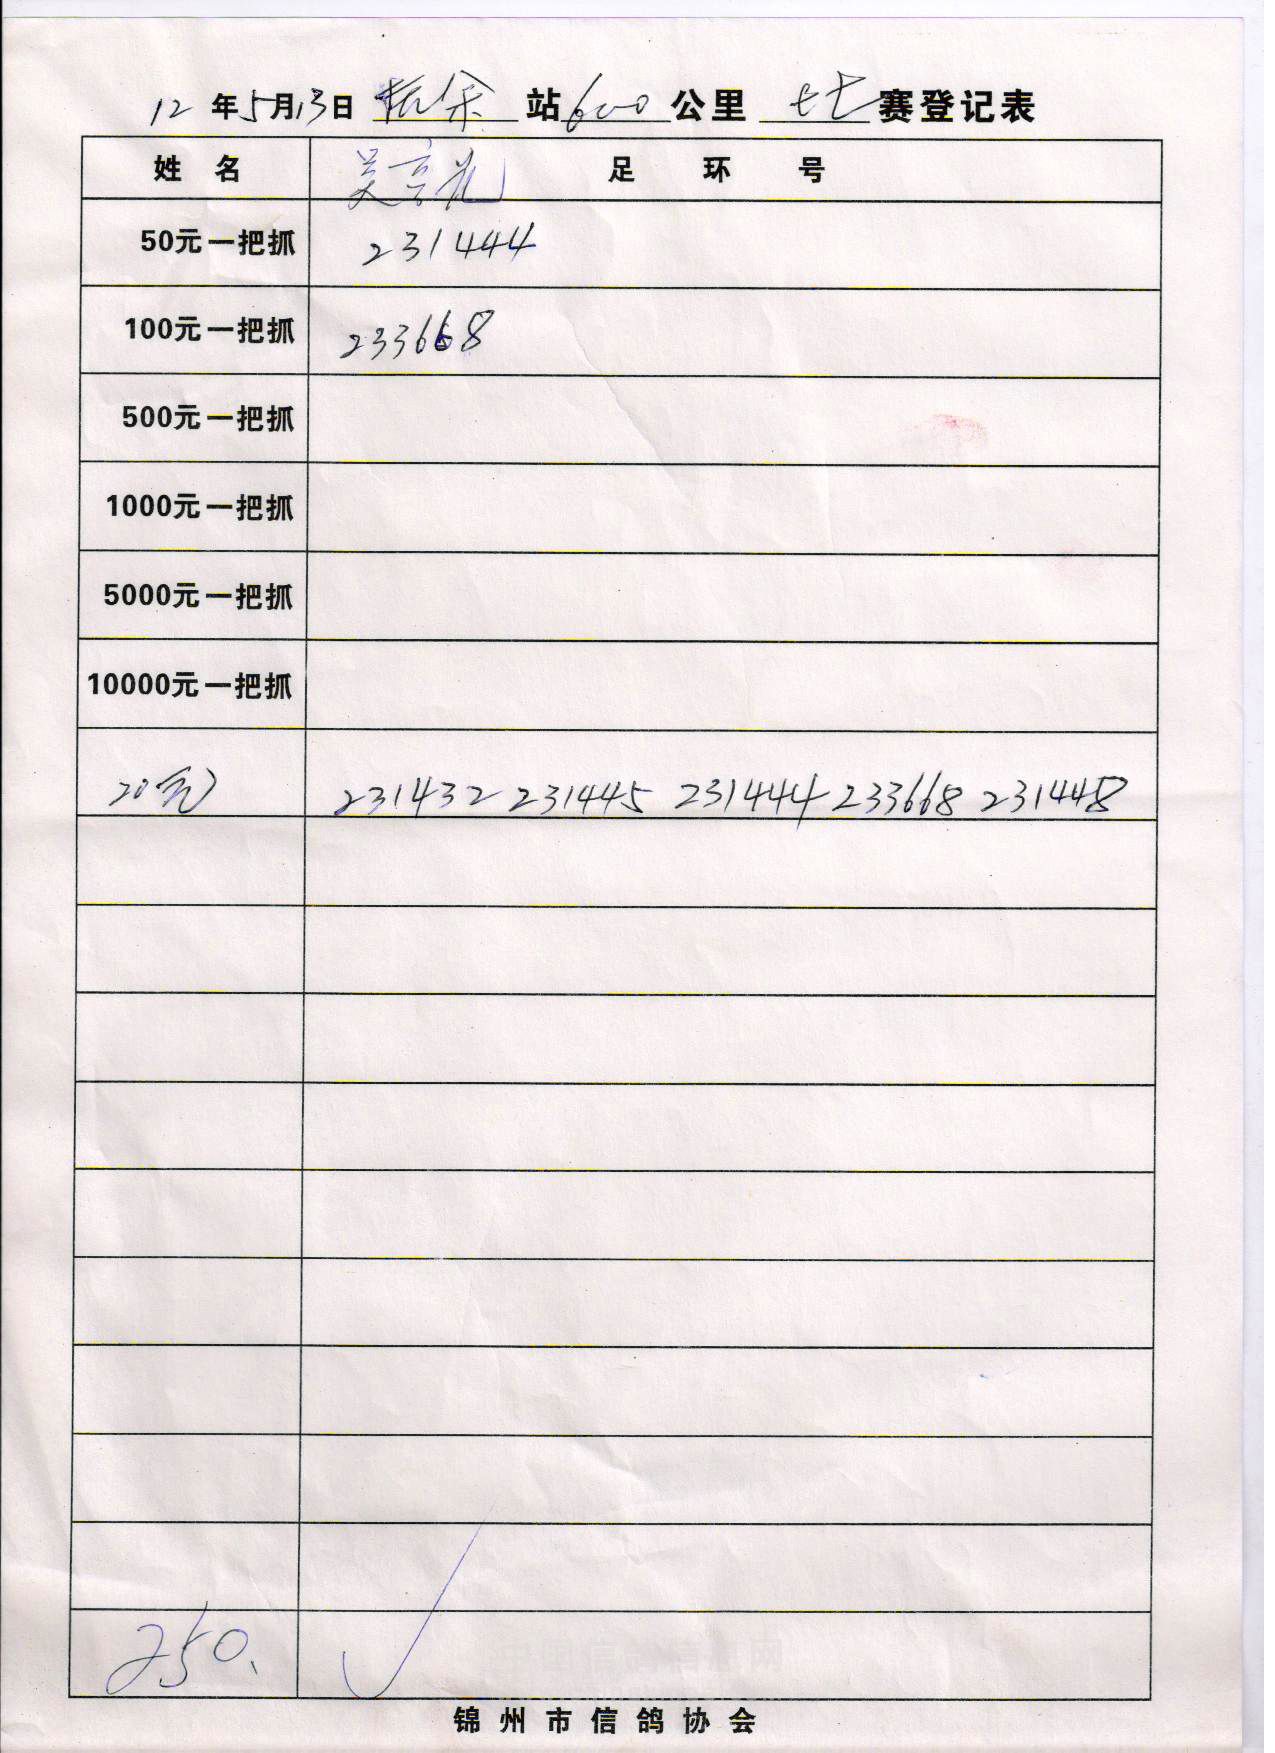 12年5月13日 扶余 站 600 公里 七七 赛登记表
姓 名 吴京龙 足 环 号
50元一把抓 231444
100元一把抓 233668
500元一把抓
1000元一把抓
5000元一把抓
10000元一把抓
20元 231432 231445 231444 233668 231448
250.
锦州市信鸽协会